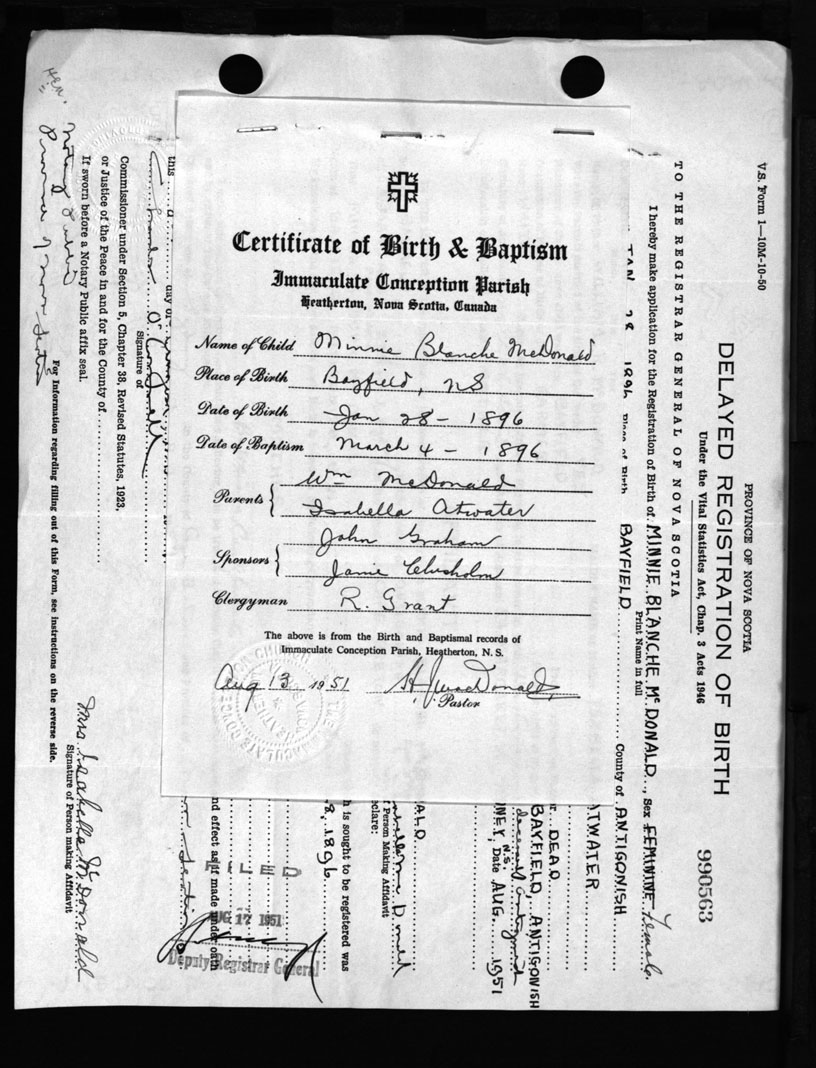 Certificate of Birth & Baptism
Immaculate Conception Parish
Heatherton, Nova Scotia, Canada
Name of Child Minnie Blanche McDonald
Place of Birth Bayfield, NS
Date of Birth Jan 28 - 1896
Date of Baptism March 4 - 1896
Parents { Wm McDonald
Isabella Atwater
Sponsors { John Graham
Janie Chisholm
Clergyman R. Grant
The above is from the Birth and Baptismal records of
Immaculate Conception Parish, Heatherton, N. S.
Aug 13 1951 H. J. MacDonald
Pastor
V.S. Form 1—10M-10-50
PROVINCE OF NOVA SCOTIA
DELAYED REGISTRATION OF BIRTH 990563
Under the Vital Statistics Act, Chap. 3 Acts 1946
TO THE REGISTRAR GENERAL OF NOVA SCOTIA
I hereby make application for the Registration of Birth of MINNIE BLANCHE McDONALD, Sex FEMININE Female.
Print Name in full
JAN 28 1896 Place of Birth BAYFIELD County of ANTIGONISH
ATWATER
DEAD
BAYFIELD, ANTIGONISH
deceased Antigonish
NEY, N.S. Date AUG. 1951
ALD
f Person Making Affidavit
eclare:
h is sought to be registered was
8, 1896
nd effect as if made under oath
FILED
AUG 17 1951
Deputy Registrar General
this day of
Signature of
Commissioner under Section 5, Chapter 38, Revised Statutes, 1923,
or Justice of the Peace in and for the County of
If sworn before a Notary Public affix seal.
Notary Public
Province of Nova Scotia
Mrs. Isabelle McDonald
Signature of Person making Affidavit
For Information regarding filling out of this Form, see instructions on the reverse side.